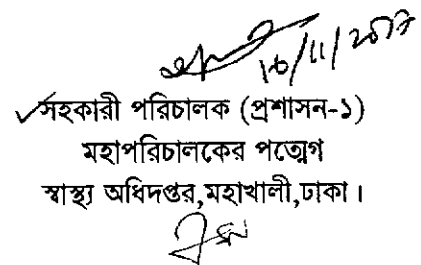 16/11/2017
সহকারী পরিচালক (প্রশাসন-১)
মহাপরিচালকের পত্মেগ
স্বাস্থ্য অধিদপ্তর,মহাখালী,ঢাকা।